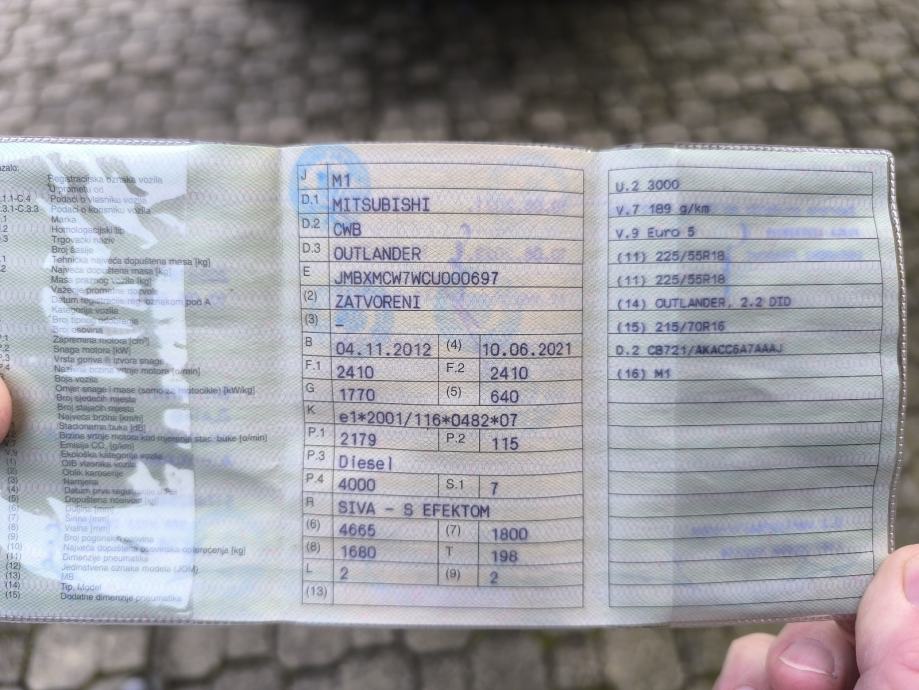 Registracijska oznaka vozila
U prometu od
Podaci o vlasniku vozila
Podaci o korisniku vozila
Marka
Homologacijski tip
Trgovački naziv
Broj šasije
Tehnička najveća dopuštena masa [kg]
Najveća dopuštena masa [kg]
Masa praznog vozila [kg]
Kategorija vozila
Broj osovina
Zapremina motora [cm³]
Snaga motora [kW]
Vrsta goriva ili izvora snage
Boja vozila
Omjer snage i mase (samo za motocikle) [kW/kg]
Broj sjedećih mjesta
Broj stajaćih mjesta
Najveća brzina [km/h]
Stacionarna buka [dB]
Brzina vrtnje motora kod mjerenja stac. buke [o/min]
Emisija CO₂ [g/km]
Ekološka kategorija vozila
OIB vlasnika vozila
Oblik karoserije
Namjena
(4)
(5) Dopuštena nosivost [kg]
(6) Duljina [mm]
(7) Širina [mm]
(8) Visina [mm]
(9) Broj pogonskih osovina
(10) Najveća dopuštena osovinska opterećenja [kg]
(11) Dimenzije pneumatika
(12) Jedinstvena oznaka modela (JOM)
(13) MB
(14) Tip, Model
(15) Dodatne dimenzije pneumatika
J M1
D.1 MITSUBISHI
D.2 CWB
D.3 OUTLANDER
E JMBXMCW7WCU000697
(2) ZATVORENI
(3) –
B 04.11.2012 (4) 10.06.2021
F.1 2410 F.2 2410
G 1770 (5) 640
K e1*2001/116*0482*07
P.1 2179 P.2 115
P.3 Diesel
P.4 4000 S.1 7
R SIVA - S EFEKTOM
(6) 4665 (7) 1800
(8) 1680 T 198
L 2 (9) 2
(13)
U.2 3000
V.7 189 g/km
V.9 Euro 5
(11) 225/55R18
(11) 225/55R18
(14) OUTLANDER, 2.2 DID
(15) 215/70R16
D.2 CB721/AKACC6A7AAAJ
(16) M1